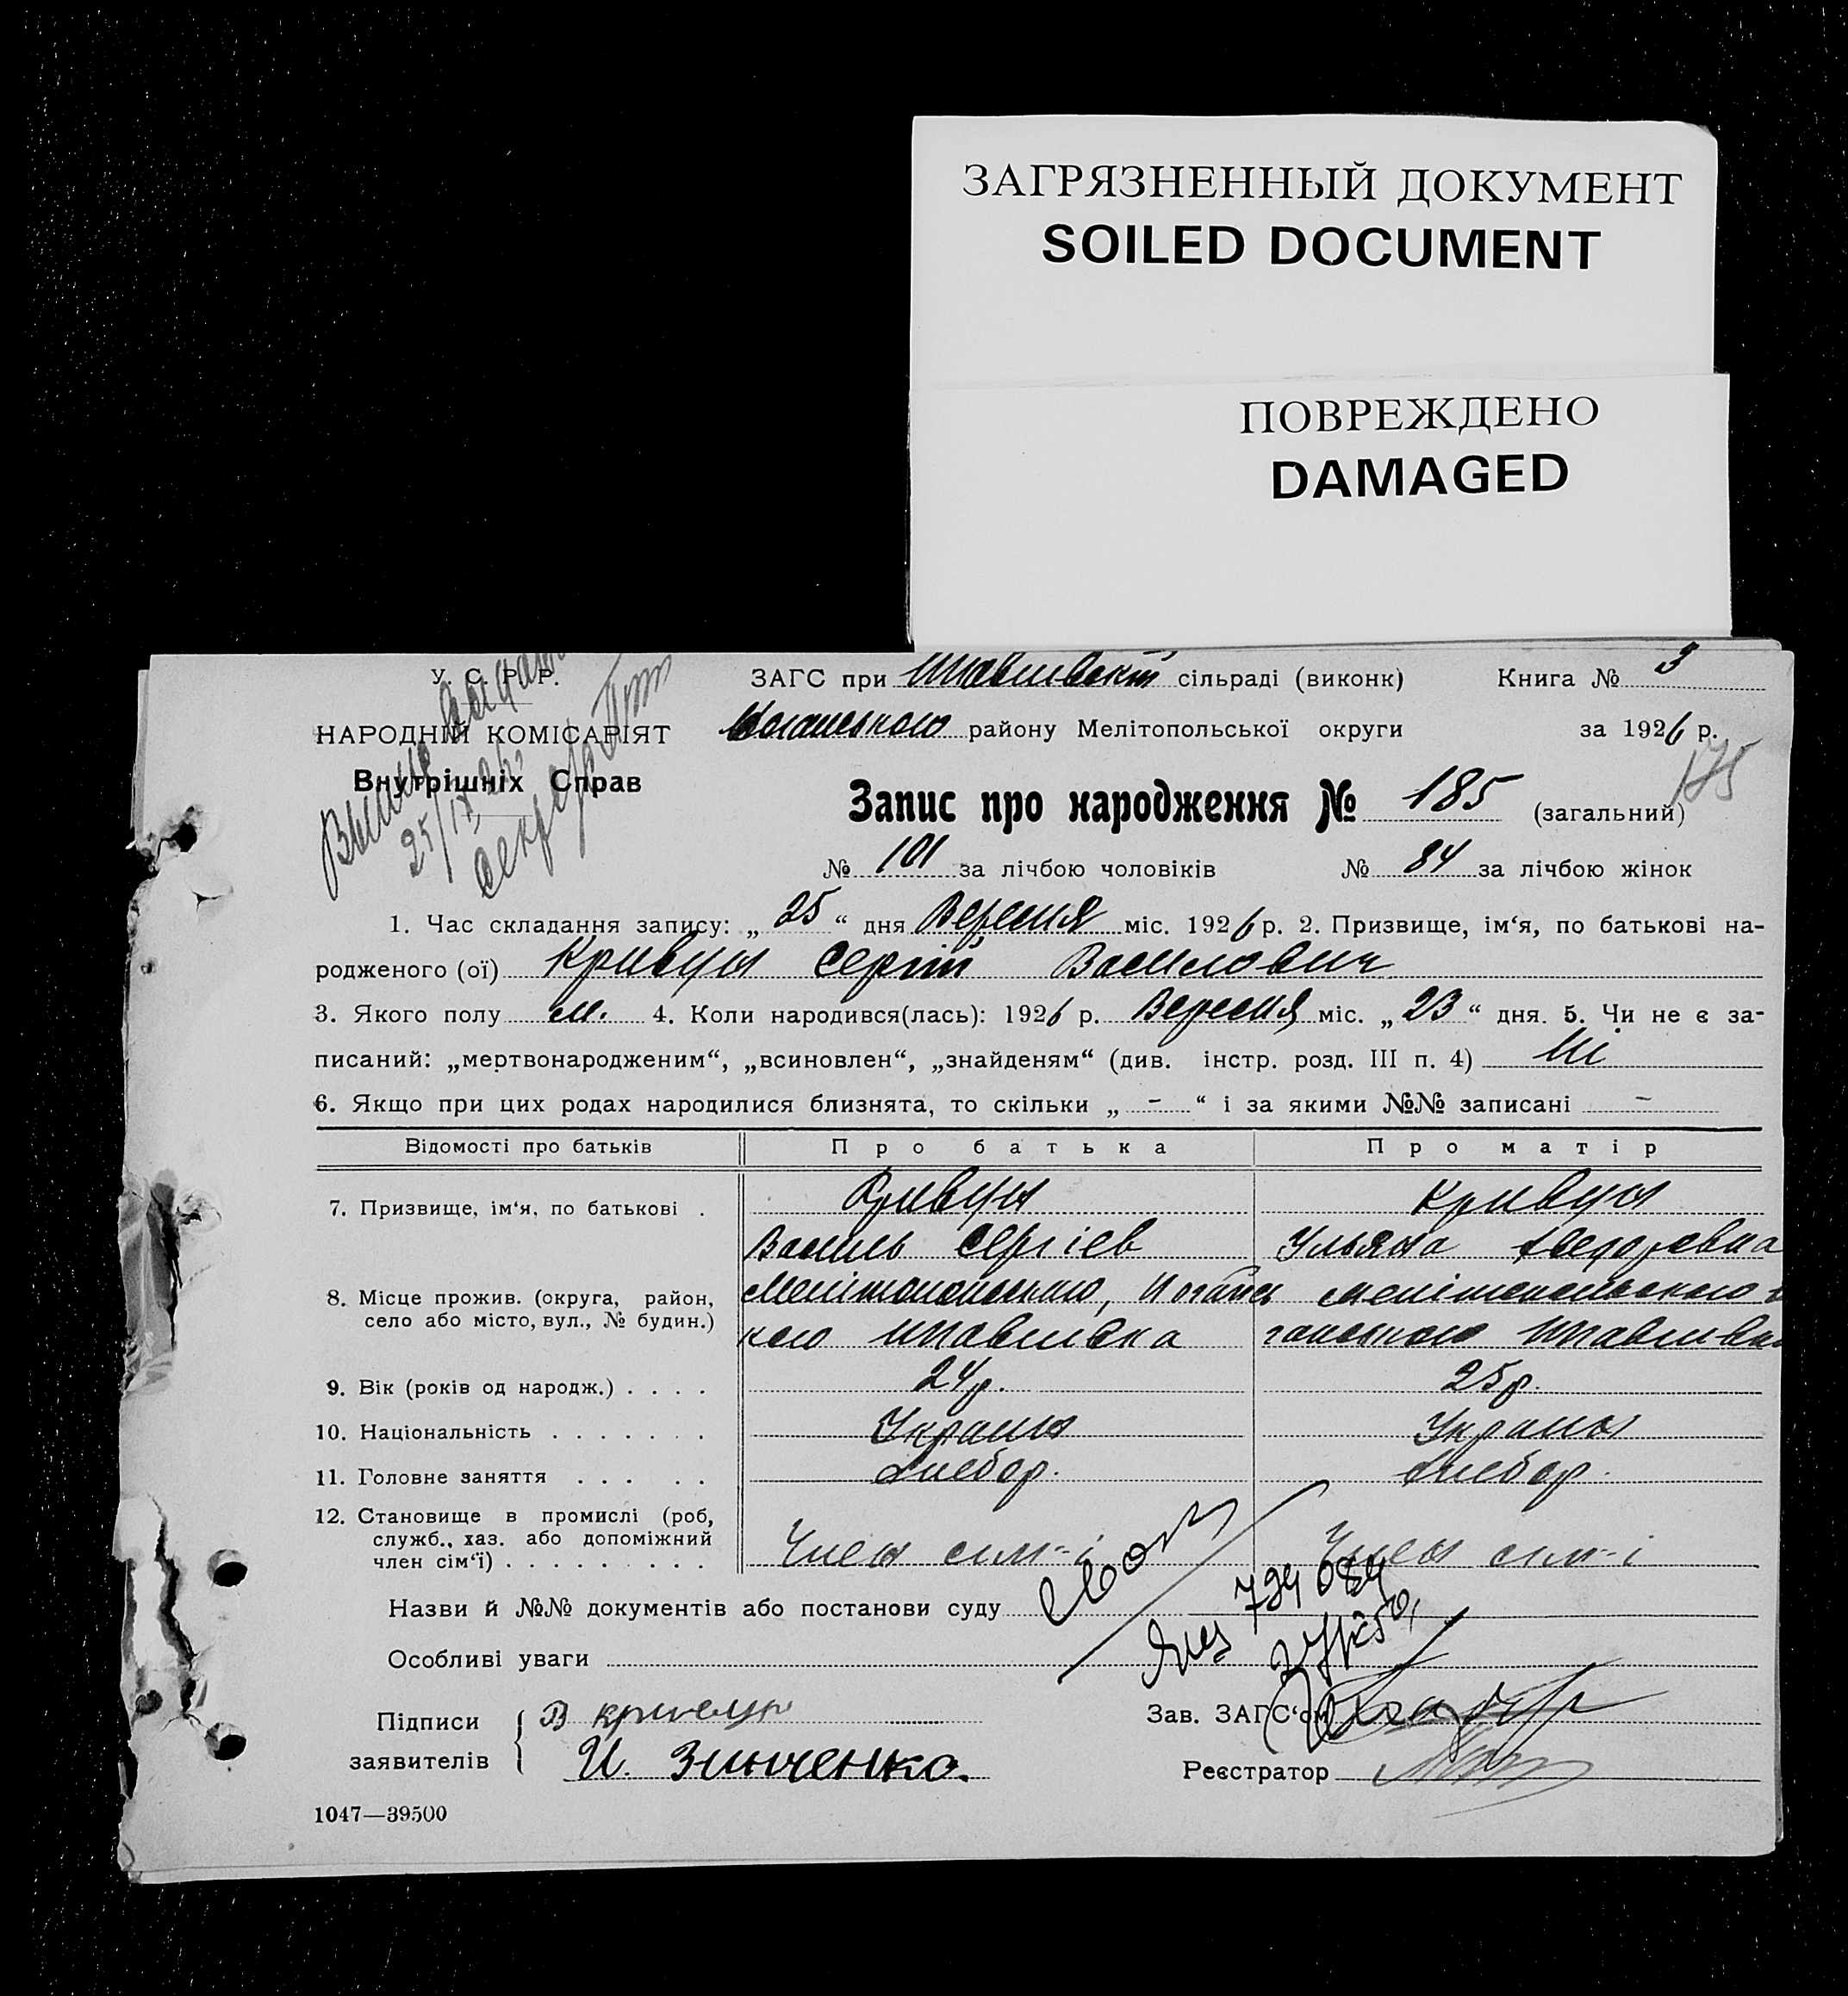 ЗАГРЯЗНЕННЫЙ ДОКУМЕНТ
SOILED DOCUMENT
ПОВРЕЖДЕНО
DAMAGED
У. С. Р. Р.
НАРОДНІЙ КОМІСАРІЯТ
Внутрішніх Справ
25/IX 26
ЗАГС при сільраді (виконк) Книга № 3
району Мелітопольської округи за 1926 р.
175
Запис про народження № 185 (загальний)
№ 101 за лічбою чоловіків № 84 за лічбою жінок
1. Час складання запису: „ 25 “ дня Вересня міс. 1926 р. 2. Призвище, ім‘я, по батькові на-
родженого (ої) Кривун Сергій Василович
3. Якого полу м. 4. Коли народився(лась): 1926 р. Вересня міс. „ 23 “ дня. 5. Чи не є за-
писаний: „мертвонародженим“, „всиновлен“, „знайденям“ (див. інстр. розд. III п. 4) Ні
6. Якщо при цих родах народилися близнята, то скільки „ - “ і за якими №№ записані -
Відомості про батьків Про батька Про матір
7. Призвище, ім‘я, по батькові . Кривун Кривун
Василь Сергіев Ульяна Федоревна
8. Місце прожив. (округа, район,
село або місто, вул., № будин.)
9. Вік (років од народж.) . . . . 24 р. 25 р.
10. Національність . . . . . . . Украин Украин
11. Головне заняття . . . . . Хлебор. Хлебор.
12. Становище в промислі (роб,
служб., хаз. або допоміжний
член сім‘ї) . . . . . . . . . Член сим-і Член сим-і
Назви й №№ документів або постанови суду
794084
Особливі уваги
Підписи
заявителів
И. Зинченко.
Зав. ЗАГС‘ом
Реєстратор
1047—39500